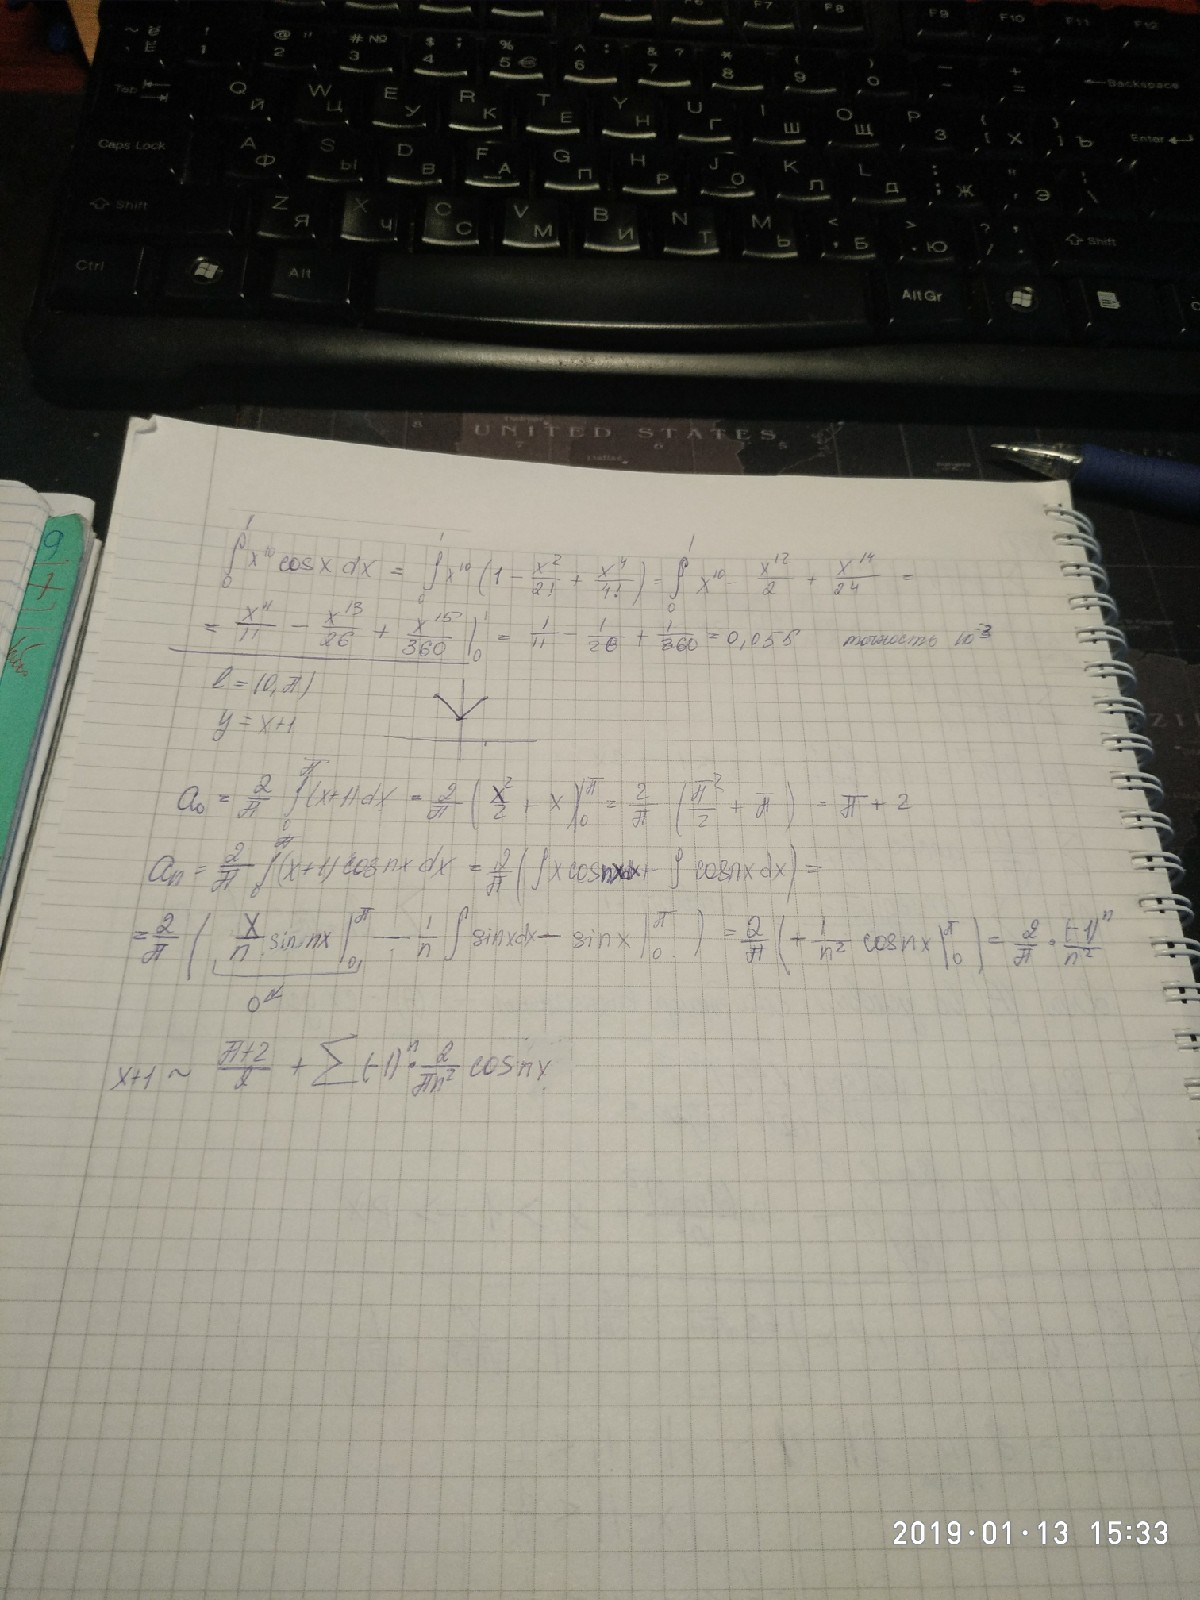 F6 F7 F8 F9 F10 F11 F12
Ё 1 2 3 4 5 6 7 8 9 0 - = ←Backspace
Tab Q Й W Ц E У R К T Е Y Н U Г I Ш O Щ P З Х Ъ Enter
Caps Lock A Ф S Ы D В F А G П H Р J О K Л L Д Ж Э \
Shift Z Я X Ч C С V М B И N Т M Ь Б Ю Shift
Ctrl Alt Alt Gr
UNITED STATES
9
7
∫₀¹ x¹⁰ cosx dx = ∫₀¹ x¹⁰ (1 - x²/2! + x⁴/4!) = ∫₀¹ x¹⁰ - x¹²/2 + x¹⁴/24 =
= x¹¹/11 - x¹³/26 + x¹⁵/360 |₀¹ = 1/11 - 1/26 + 1/360 = 0,055 точность 10⁻³
l = (0, π)
y = x+1
a₀ = 2/π ∫₀^π (x+1) dx = 2/π (x²/2 + x)|₀^π = 2/π (π²/2 + π) = π + 2
aₙ = 2/π ∫₀^π (x+1) cosnx dx = 2/π (∫ x cosnxdx - ∫ cosnx dx) =
= 2/π (x/n sin nx |₀^π - 1/n ∫ sinxdx - sinx |₀^π) = 2/π (+ 1/n² cosnx |₀^π) = 2/π · (-1)ⁿ/n²
0
x+1 ~ (π+2)/2 + ∑ (-1)ⁿ · 2/πn² cosnx
2019·01·13 15:33